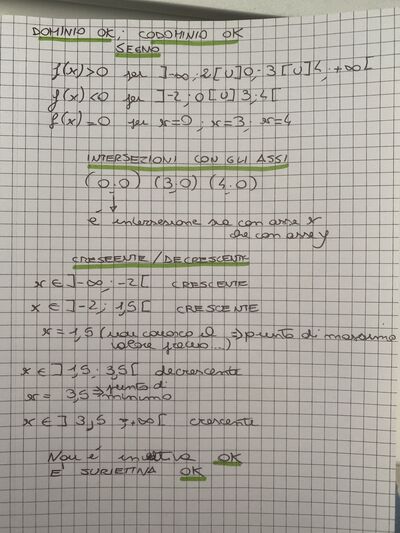 DOMINIO OK; CODOMINIO OK
SEGNO
f(x)>0 per ]-∞,2[U]0;3[U]4;+∞[
f(x)<0 per ]-2;0[U]3;4[
f(x)=0 per x=0; x=3; x=4
INTERSEZIONI CON GLI ASSI
(0;0) (3;0) (4;0)
é intersezione sia con asse x
che con asse y
CRESCENTE/DECRESCENTE
x∈]-∞;-2[ CRESCENTE
x∈]-2; 1,5[ CRESCENTE
x=1,5 (non conosco il valore preciso...) ⇒ punto di massimo
x∈]1,5; 3,5[ decrescente
x= 3,5 ⇒ punto di minimo
x∈]3,5 ;+∞[ crescente
Non é iniettiva OK
E' SURIETTIVA OK